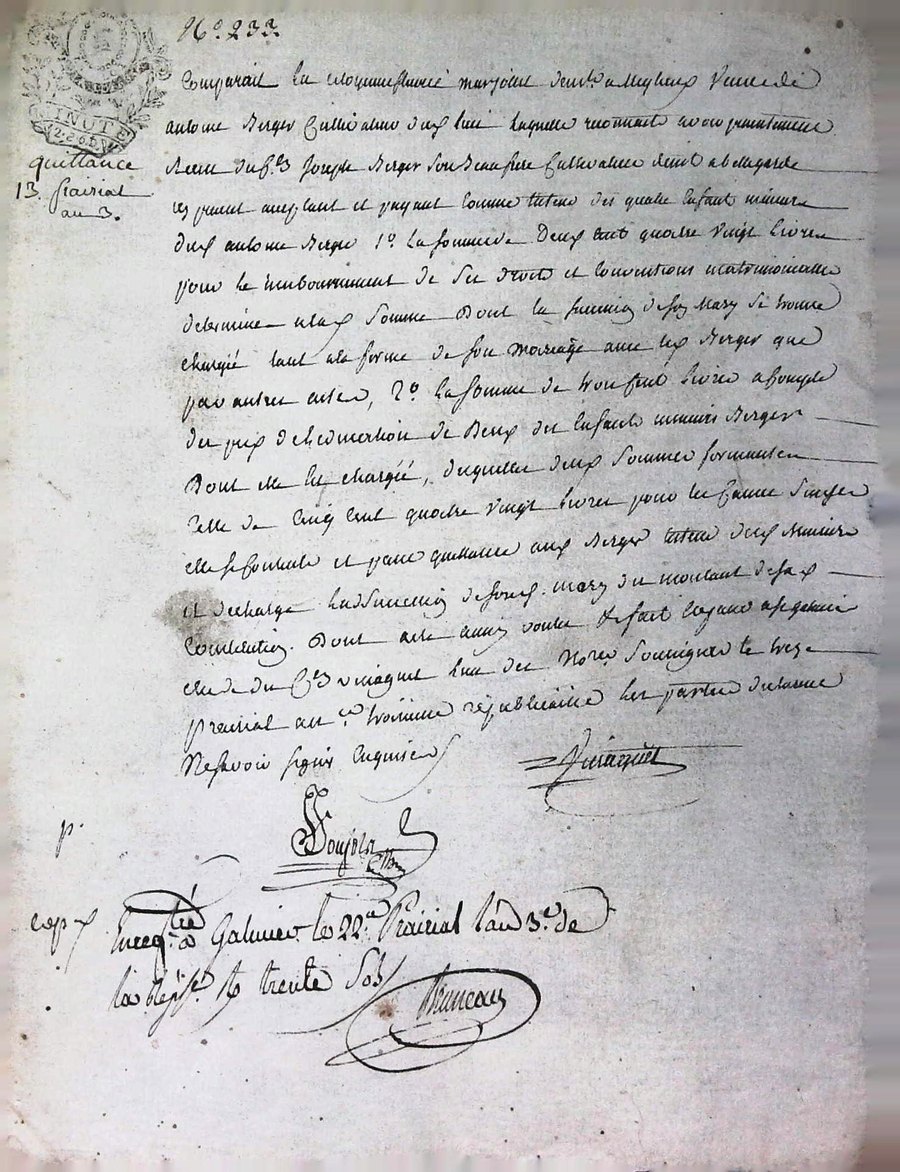 N.o 233.
MINUTE
quittance
13 prairial
an 3.
Comparait la citoyenne marjolet demt. a veuve de
antoine Berger Cultivateur laquelle reconnait avoir presentement
Recue du C.en Joseph Berger son Beaufrere Cultivateur dudit a belegarde
ici present acceptant et payant comme tuteur des quatre Enfant mineurs
dud antoine Berger 1.o La somme de Deux Cent quatre vingt livres
pour le Remboursement de ses droits et Conventions matrimonialle
determine a lad somme Dont la succession de son Mary se trouve
chargée tant a la forme de son mariage avec led Berger que
par autres actes, 2.o La somme de trois Cent livres a Compte
du prix de de Deux des Enfants mineurs Berger
Dont elle est chargée, desquelles deux sommes formantes
Celle de Cinq Cent quatre vingt livres pour les Causes
elle se Contente et passe quittance aud Berger tuteur desd Mineurs
et decharge la succession de son d. mary du montant de sad
Dont acte ainsi voulu & fait a St galmier
Etude du C.en vinagnet l'un des Nores. soussignes le treze
prairial an troisieme republicaine les parties
Ne savoir signer Enquises
p.
Exp d
Enregtré a Galmier le 22.e Prairial l'an 3.e de
la Rép.e R trente Sols
Bruneau